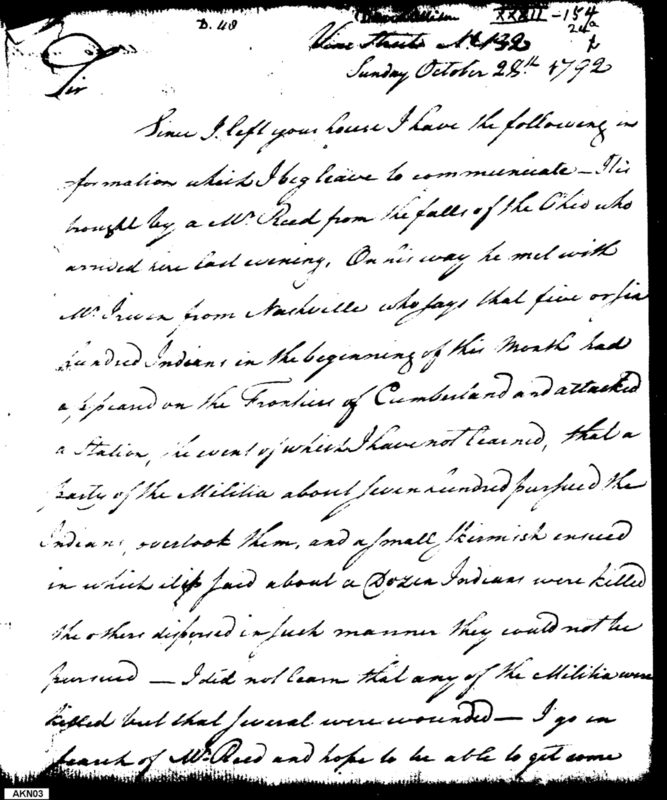 D. 48
XXXII - 154
24a
Vine Street No 132
Sunday October 28th 1792
Sir
Since I left your house I have the following in
formation which I beg leave to communicate — It is
brought by a Mr. Reed from the falls of the Ohio who
arrived here last evening. On his way he met with
Mr. Irwin from Nashville who says that five or six
hundred Indians in the beginning of this Month had
appeard on the Frontiers of Cumberland and attacked
a Station, the event of which I have not learned, that a
party of the Militia about seven hundred pursued the
Indians, overtook them, and a small skirmish ensued
in which it is said about a Dozen Indians were killed
the others dispersed in such manner they could not be
pursued — I did not learn that any of the Militia were
killed but that several were wounded — I go in
search of Mr. Reed and hope to be able to get some
AKN03